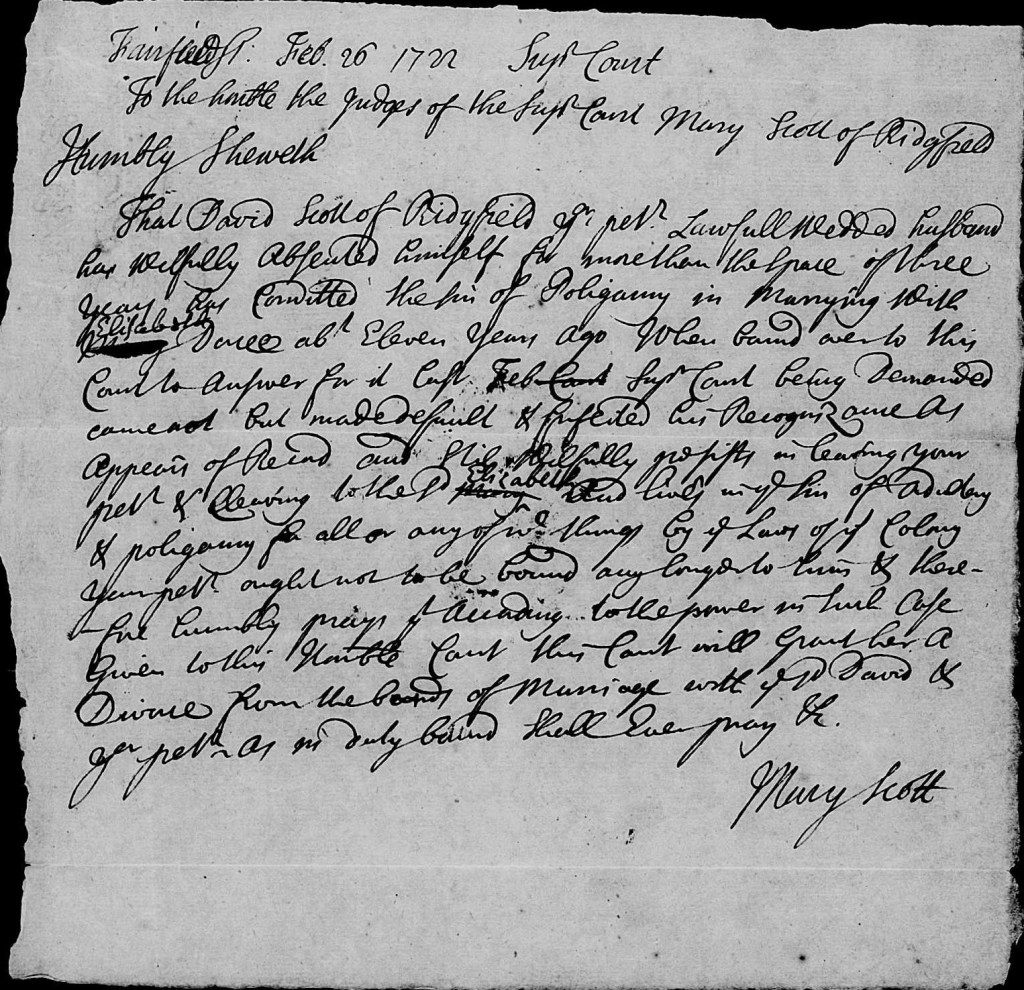 Fairfield ss: Feb. 26 1722 Supr Court
To the honble the Judges of the Supr Court Mary Scott of Ridgfield
Humbly Sheweth
That David Scott of Ridgfield yr petrs Lawfull Wedded husband
has Wilfully Absented himself for more than the space of three
Years has Comitted the sin of Poligamy in Marrying With
Elisabeth
abt Eleven Years ago When bound over to this
Court to Answer for it last Feb Court Supr Court being Demanded
came not but made default & forfeited his Recognizance As
Appears of Record and Still Wilfully persists in leaving your
petr & Cleaving to the sd Mary Elizabeth And lives in ye sin of Adultery
& poligamy for all or any of wch things by ye Laws of ys Colony
Your petr ought not to be bound any longer to him & there-
-fore humbly prays yt According to the power in such Case
Given to this Honble Court this Court will Grant her A
Divorce from the bonds of Marriage with ye sd David &
yr petr As in duty bound Shall Ever pray &c.
Mary Scott